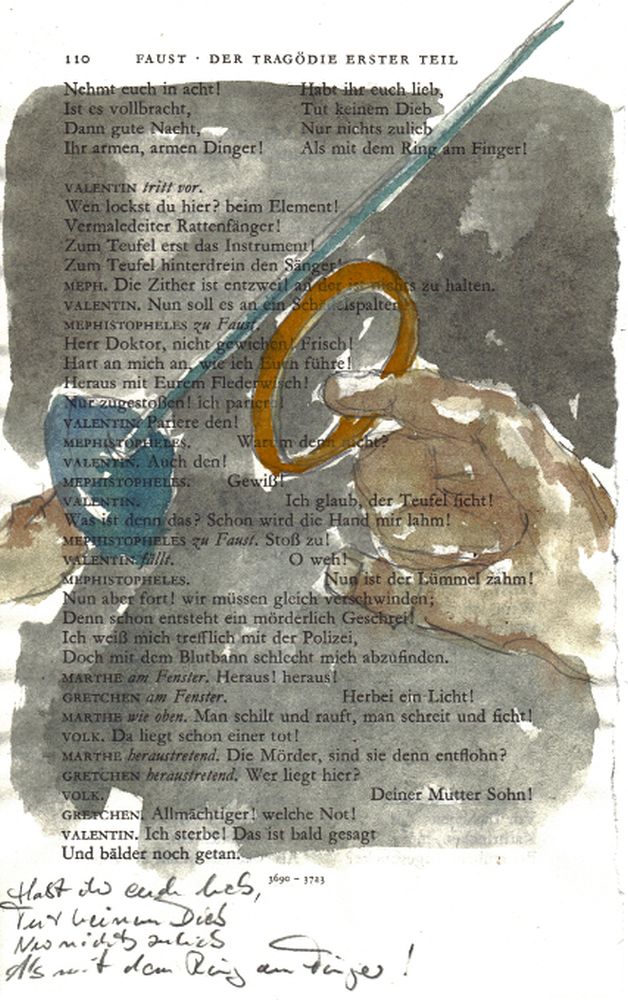 110 FAUST · DER TRAGÖDIE ERSTER TEIL
Nehmt euch in acht! Habt ihr euch lieb,
Ist es vollbracht, Tut keinem Dieb
Dann gute Nacht, Nur nichts zulieb
Ihr armen, armen Dinger! Als mit dem Ring am Finger!
VALENTIN tritt vor.
Wen lockst du hier? beim Element!
Vermaledeiter Rattenfänger!
Zum Teufel erst das Instrument!
Zum Teufel hinterdrein den Sänger!
MEPH. Die Zither ist entzwei! an der ist nichts zu halten.
VALENTIN. Nun soll es an ein Schädelspalten!
MEPHISTOPHELES zu Faust.
Herr Doktor, nicht gewichen! Frisch!
Hart an mich an, wie ich Euch führe!
Heraus mit Eurem Flederwisch!
Nur zugestoßen! ich pariere!
VALENTIN. Pariere den!
MEPHISTOPHELES. Warum denn nicht?
VALENTIN. Auch den!
MEPHISTOPHELES. Gewiß!
VALENTIN. Ich glaub, der Teufel ficht!
Was ist denn das? Schon wird die Hand mir lahm!
MEPHISTOPHELES zu Faust. Stoß zu!
VALENTIN fällt. O weh!
MEPHISTOPHELES. Nun ist der Lümmel zahm!
Nun aber fort! wir müssen gleich verschwinden;
Denn schon entsteht ein mörderlich Geschrei!
Ich weiß mich trefflich mit der Polizei,
Doch mit dem Blutbann schlecht mich abzufinden.
MARTHE am Fenster. Heraus! heraus!
GRETCHEN am Fenster. Herbei ein Licht!
MARTHE wie oben. Man schilt und rauft, man schreit und ficht!
VOLK. Da liegt schon einer tot!
MARTHE heraustretend. Die Mörder, sind sie denn entflohn?
GRETCHEN heraustretend. Wer liegt hier?
VOLK. Deiner Mutter Sohn!
GRETCHEN. Allmächtiger! welche Not!
VALENTIN. Ich sterbe! Das ist bald gesagt
Und bälder noch getan.
3690 – 3723
Habt ihr euch lieb,
Tut keinem Dieb
Nur nichts zulieb
Als mit dem Ring am Finger!